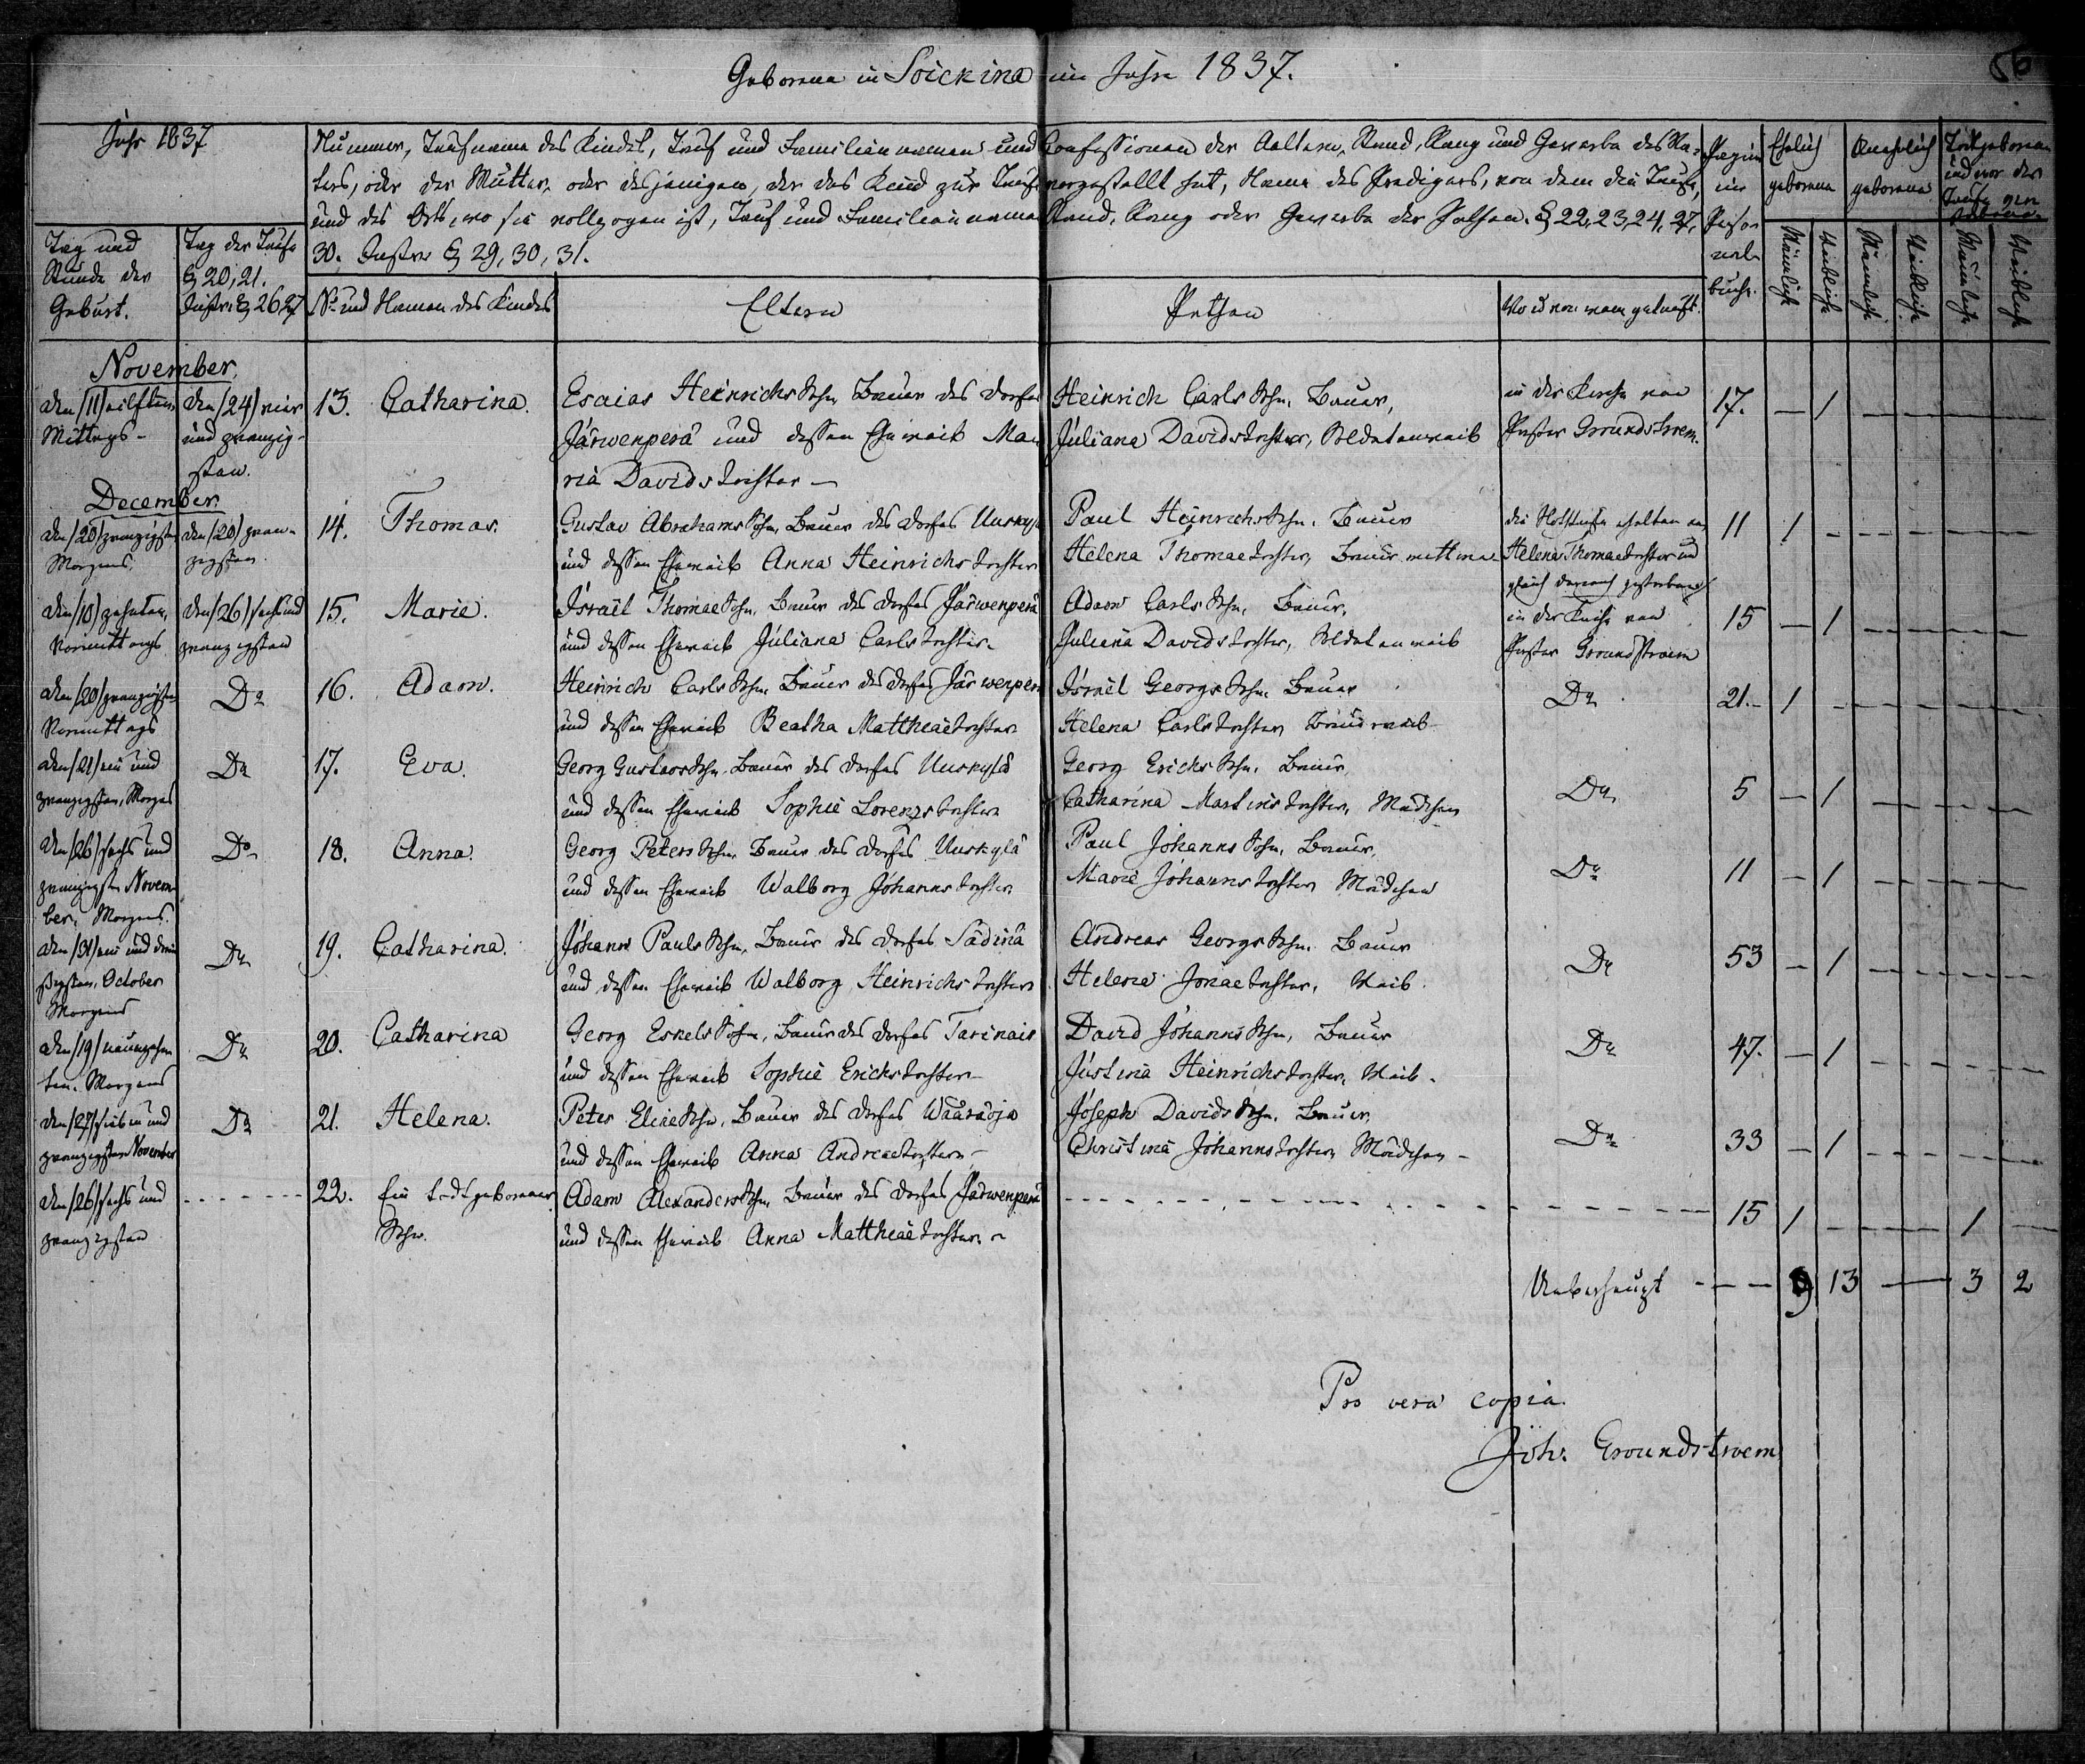 Geborene in Soickina im Jahre 1837.
56
Jahr 1837
Nummer, Taufname des Kindes, Tauf und Familiennamen und Confessionen der Aeltern, Stand, Rang und Gewerbe des Va-
ters, oder der Mutter, oder desjenigen, der das Kind zur Taufe vorgestellt hat, Name des Predigers, von dem die Taufe,
und des Orts, wo sie vollzogen ist, Tauf und Familienname Stand, Rang oder Gewerbe der Pathen. § 22, 23, 24, 27,
30. Instr. § 29, 30, 31.
Tag und
Stunde der
Geburt.
Tag der Taufe
§ 20, 21.
Instr. § 26 27
No und Namen des Kindes
Eltern
Pathen
Wo u von wem getauft.
Pagina
im
Perso
nal-
buche.
Ehelich
geborene
Unehelich
geborene
Todtgeborene
und vor der
Taufe
Männlich
Weiblich
Männlich
Weiblich
Männlich
Weiblich
November.
den /11/ eilften,
Mittags -
den /24/ vier
und zwanzig-
sten.
13. Catharina.
Esaias Heinrichs Sohn, Bauer des Dorfes
Järwenperä und dessen Eheweib Ma-
ria Davids Tochter -
Heinrich Carls Sohn, Bauer,
Juliana Davidstochter, Soldatenweib
in der Kirche von
Pastor Groundstroem.
17. — 1 — — — —
December.
den /20/ zwanzigsten
Morgens.
den /20/ zwan-
zigsten
14. Thomas.
Gustav Abrahams Sohn, Bauer des Dorfes Uuskyl
und dessen Eheweib Anna Heinrichs Tochter
Paul Heinrichs Sohn, Bauer
Helena Thomae tochter, Bauerwittwe
die Nothtaufe erhalten von
Helena Thomaetochter und
gleich darnach gestorben
11 1 - - - - -
den /10/ zehnten,
Vormittags
den /26/ sechsund
zwanzigsten
15. Marie.
Israël Thomae Sohn, Bauer des Dorfes Järwenperä
und dessen Eheweib Juliana Carls tochter.
Adam Carls Sohn, Bauer,
Juliana Davids tochter, Soldatenweib
in der Kirche von
Pastor Groundstroem
15 — 1 — — — —
den /20/ zwanzigsten
Vormittags
Do
16. Adam.
Heinrich Carls Sohn, Bauer des Dorfes Järwenper
und dessen Eheweib Beatha Matthiaetochter
Israël Georgs Sohn, Bauer
Helena Carls tochter, Bauerweib
Do
21. 1 - - - - -
den /21/ ein und
zwanzigsten, Morgens
Do
17. Eva.
Georg Gustavs Sohn, Bauer des Dorfes Uuskylä
und dessen Eheweib Sophie Lorenzs tochter
Georg Erichs Sohn, Bauer,
Catharina Martins tochter, Mädchen
Do
5 — 1 — — — —
den /26/ sechs und
zwanzigsten Novem-
ber, Morgens.
Do
18. Anna.
Georg Peters Sohn, Bauer des Dorfes Uuskylä
und dessen Eheweib Walborg Johanns tochter
Paul Johanns Sohn, Bauer,
Marie Johanns tochter, Mädchen
Do
11 — 1 — — — —
den /31/ ein und drei
ßigsten, October
Morgens
Do
19. Catharina.
Johann Pauls Sohn, Bauer des Dorfes Sädinä
und dessen Eheweib Walborg Heinrichs tochter
Andreas Georgs Sohn, Bauer
Helena Jonae tochter, Weib.
Do
53 — 1 — — — —
den /19/ neunzehn
ten, Morgens
Do
20. Catharina
Georg Eskels Sohn, Bauer des Dorfes Tarinais
und dessen Eheweib Sophie Erichs tochter
David Johanns Sohn, Bauer
Justina Heinrichs tochter, Weib.
Do
47. — 1 - - - -
den /27/ sieben und
zwanzigsten November
Do
21. Helena.
Peter Eliae Sohn, Bauer des Dorfes Wääräoja
und dessen Eheweib Anna Andreaetochter -
Joseph Davids Sohn, Bauer,
Christina Johanns tochter, Mädchen -
Do
33 — 1 - - - -
den /26/ sechs und
zwanzigsten
22. Ein todtgeborener
Sohn.
Adam Alexanders Sohn, Bauer des Dorfes Järwenperä
und dessen Eheweib Anna Matthiae tochter.
15 1 — — — 1 —
Ueberhaupt - — — 9 13 — 3 2
Pro vera copia.
Joh. Groundstroem